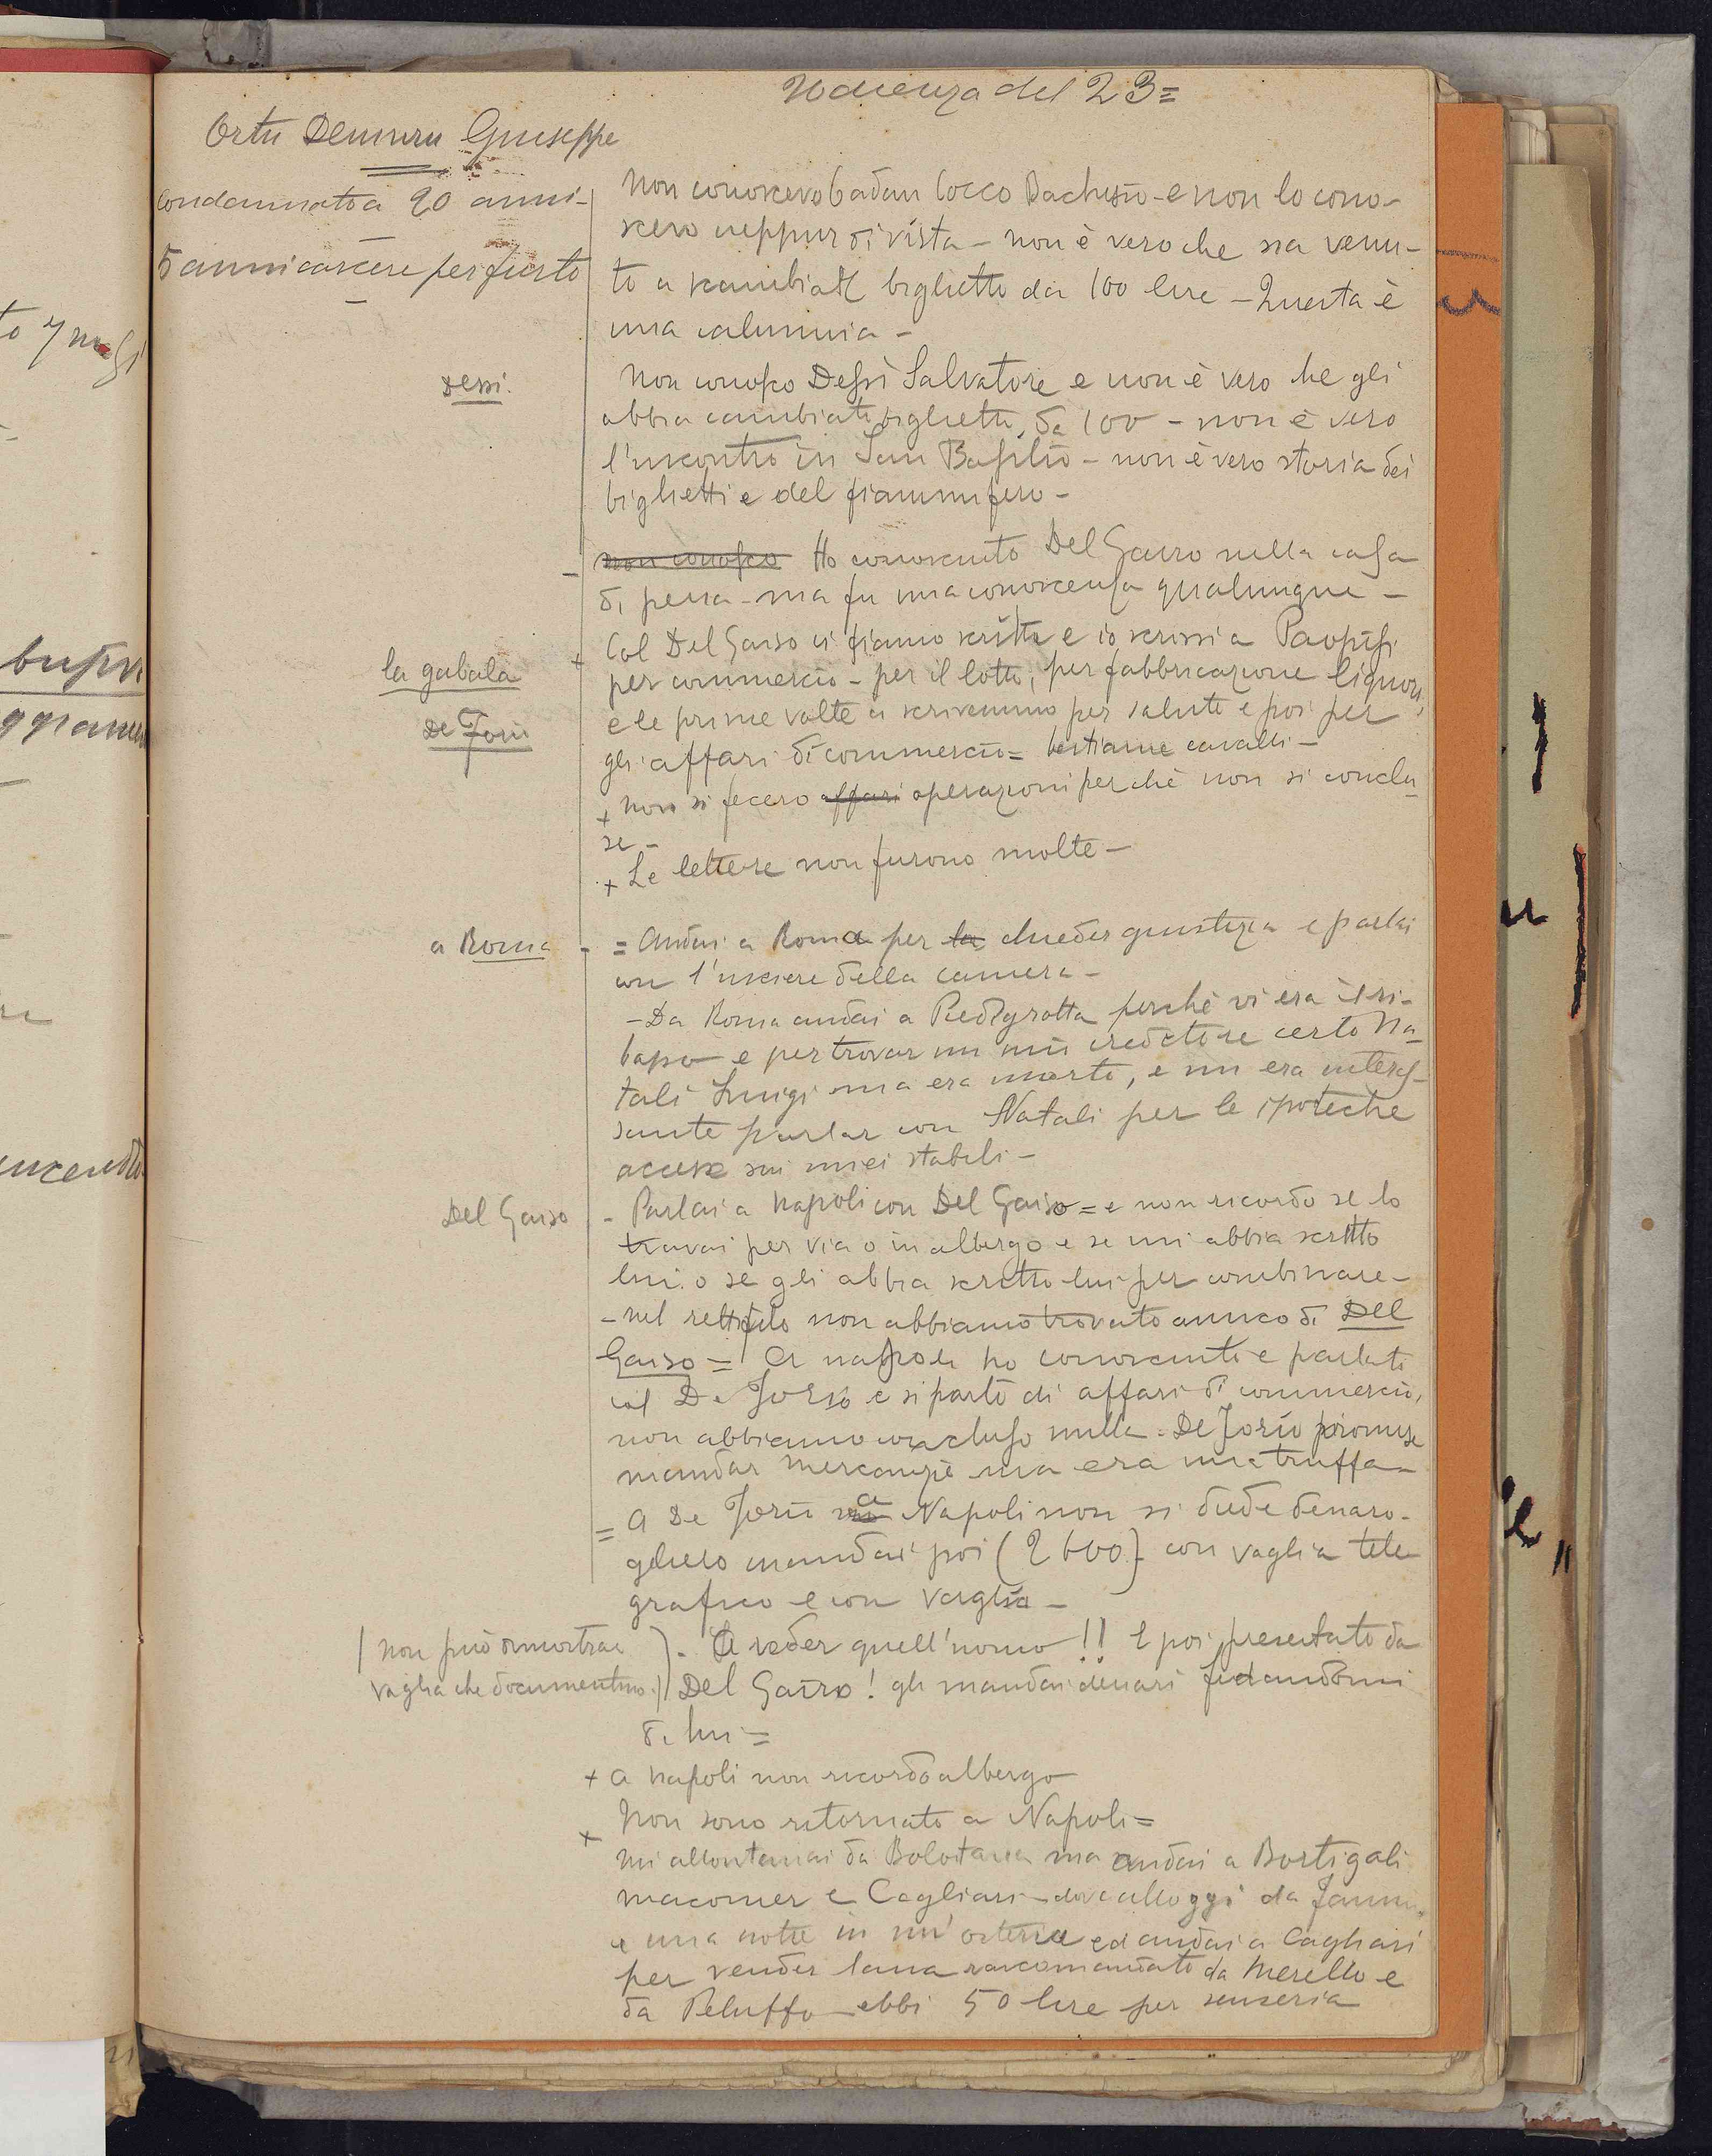 Udienza del 23=
Ortu Demuru Giuseppe
Condannato a 20 anni-
5 anni carcere per furto
Non conoscevo Cadau Cocco Bachisio - e non lo cono-
scevo neppur di vista - non è vero che sia venu-
to a scambiar biglietto da 100 lire - Questa è
una calunnia -
Dessì.
Non conosco Dessì Salvatore e non è vero che gli
abbia cambiati biglietti da 100 - non è vero
l'incontro in San Basilio - non è vero storia dei
biglietti e del fiammifero -
- non conosco Ho conosciuto Del Gaiso nella casa
di pena - ma fu una conoscenza qualunque -
la gabala
De Jorio
+ Col Del Gaiso ci siamo scritti e io scrissi a
per commercio - per il lotto, per fabbricazione liquori,
e le prime volte ci scrivemmo per salute e poi per
gli affari di commercio = bestiame cavalli -
+ non si fecero affari operazioni perchè non si conclu-
se -
+ Le lettere non furono molte -
a Roma
- = Andai a Roma per la chieder giustizia e parlai
con l'usciere della camera -
- Da Roma andai a Piedigrotta perchè vi era il ri-
basso e per trovar un mio creditore certo Na-
tali Luigi ma era morto, e mi era interes-
sante parlar con Natali per le ipoteche
accese sui miei stabili -
Del Gaiso
- Parlai a Napoli con Del Gaiso = e non ricordo se lo
trovai per via o in albergo e se mi abbia scritto
lui o se gli abbia scritto lui per combinare -
- nel rettifilo non abbiamo trovato amico di Del
Gaiso = A Napoli ho conosciuto e parlato
col De Jorio e si parlò di affari di commercio,
non abbiamo concluso nulla - De Jorio promise
mandar mercanzie ma era una truffa -
= A De Jorio a Napoli non si diede denaro -
glieli mandai poi (2600) con vaglia tele-
grafico e con vaglia -
(non può dimostrar
vaglia che documentino.)
- A veder quell'uomo!! E poi presentato da
Del Gaiso! gli mandai denari fidandomi
di lui =
+ a Napoli non ricordo albergo
+ Non sono ritornato a Napoli =
mi allontanai da Bolotana ma andai a Bortigali
Macomer e Cagliari - dove alloggi da
e una notte in un'osteria ed andai a Cagliari
per vender lana raccomandato da Merello e
da Peluffo - ebbi 50 lire per senseria
to 7